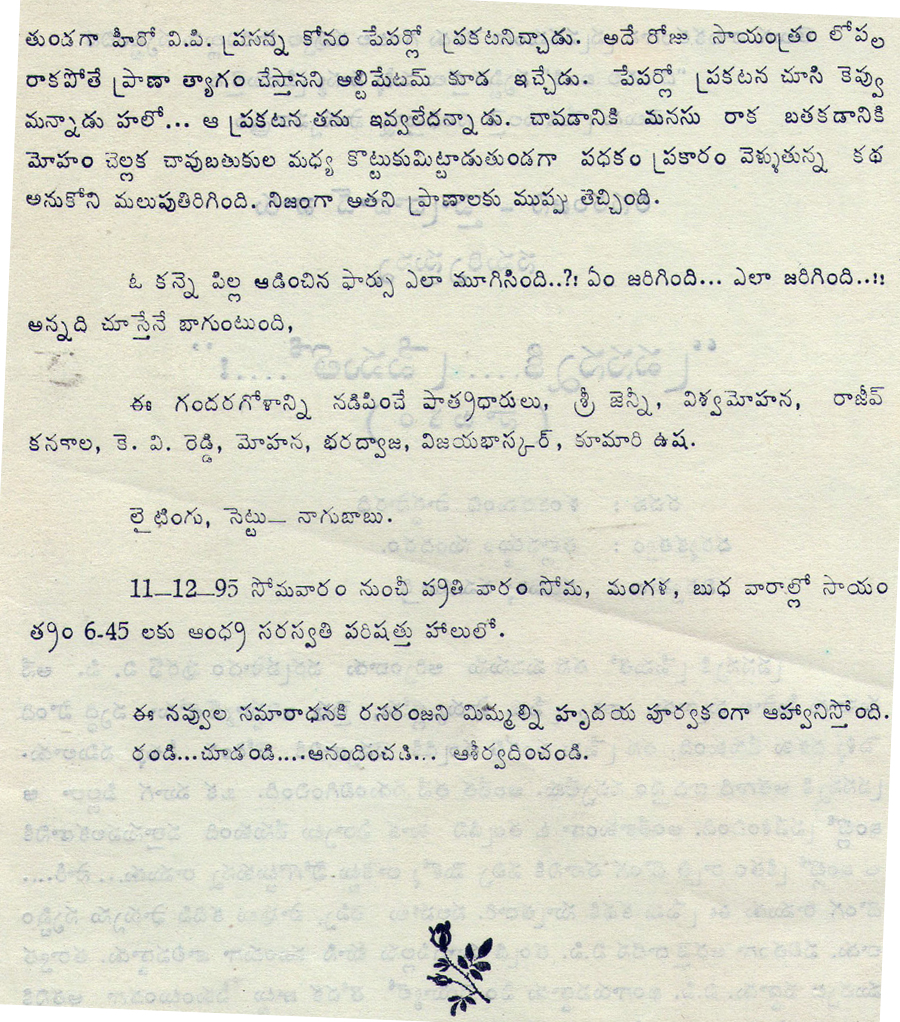 తుండగా హీరో వి.పి. ప్రసన్న కోసం పేపర్లో ప్రకటనిచ్చాడు. అదే రోజు సాయంత్రం లోపల
రాకపోతే ప్రాణా త్యాగం చేస్తానని అల్టిపేటమ్ కూడ ఇచ్చేడు. పేపర్లో ప్రకటన చూసి కెవ్వు
మన్నాడు హలో... ఆ ప్రకటన తను ఇవ్వలేదన్నాడు. చావడానికి మనసు రాక బతకడానికి
మోహం చెల్లక చావుబతుకుల మధ్య కొట్టుకుమిట్టాడుతుండగా పధకం ప్రకారం వెళ్ళుతున్న కథ
అనుకోని మలుపుతిరిగింది. నిజంగా అతని ప్రాణాలకు ముప్పు తెచ్చింది.
ఓ కన్నె పిల్ల ఆడించిన ఫార్సు ఎలా మూగిసింది..?! ఏం జరిగింది... ఎలా జరిగింది..!!
అన్నది చూస్తేనే బాగుంటుంది,
ఈ గందరగోళాన్ని నడిపించే పాత్రధారులు, శ్రీ జెన్నీ, విశ్వమోహన, రాజీవ్
కనకాల, కె. వి. రెడ్డి, మోహన, భరద్వాజ, విజయభాస్కర్, కూమారి ఉష.
లైటింగు, సెట్టు— నాగుబాబు.
11—12—95 సోమవారం నుంచీ ప్రతి వారం సోమ, మంగళ, బుధ వారాల్లో సాయం
త్రం 6-45 లకు ఆంధ్ర సరస్వతి పరిషత్తు హాలులో.
ఈ నవ్వుల సమారాధనకి రసరంజని మిమ్మల్ని హృదయ పూర్వకంగా ఆహ్వానిస్తోంది.
రండి...చూడండి....ఆనందించడి... ఆశీర్వదించండి.